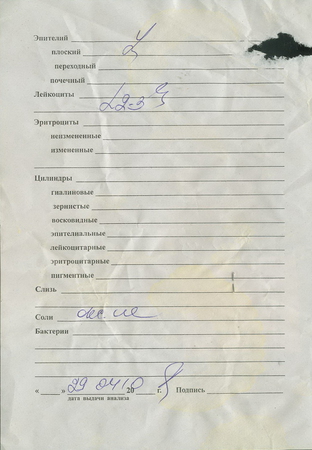 Эпителий
плоский
переходный
почечный
Лейкоциты 2-3
Эритроциты
неизмененные
измененные
Цилиндры
гиалиновые
зернистые
восковидные
эпителиальные
лейкоцитарные
эритроцитарные
пигментные
Слизь
Соли
Бактерии
« » 29 04 10 20 г. Подпись
дата выдачи анализа